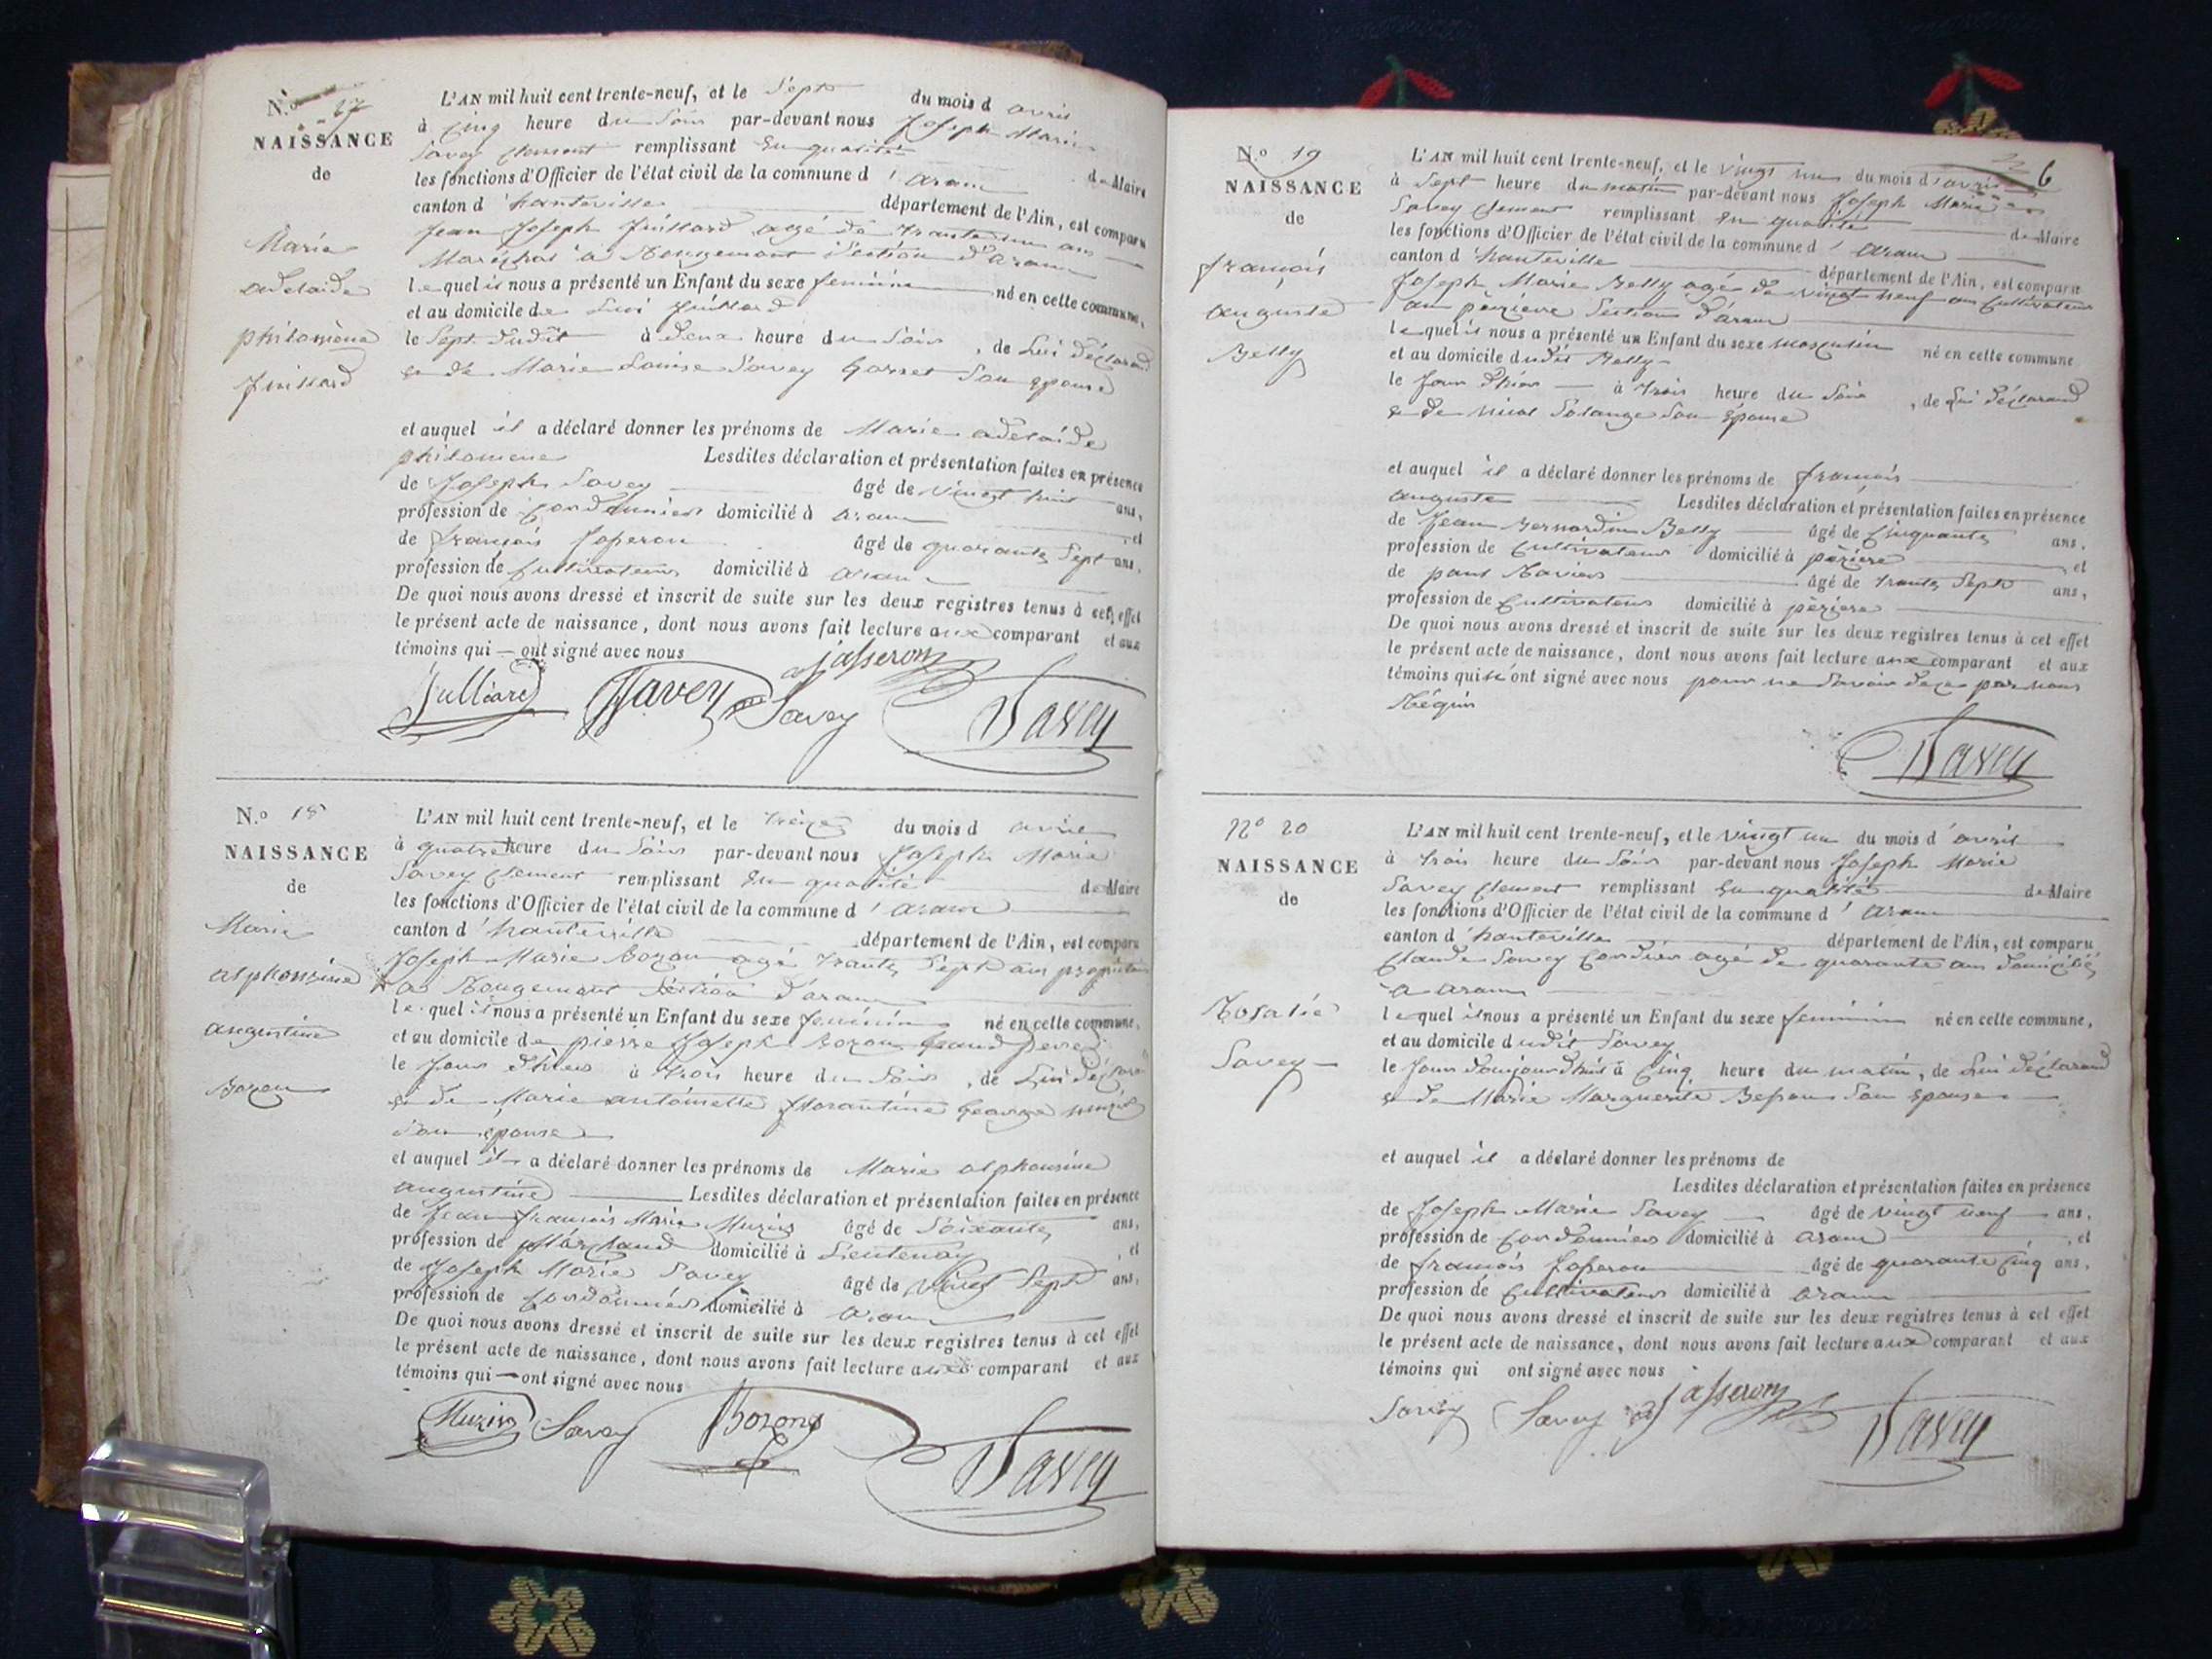 N.º 17
NAISSANCE
de
Marie
adelaide
philomène
Juillard
L'AN mil huit cent trente-neuf, et le Sept du mois d avril
à Cinq heure du Soir par-devant nous Joseph Marie
Savey Clement remplissant En qualité de Maire
les fonctions d'Officier de l'état civil de la commune d ' aranc
canton d ' hauteville département de l'Ain, est comparu
Jean Joseph Juillard agé de trente un ans
Maréchal à Rougemont Section d'aranc
lequel il nous a présenté un Enfant du sexe feminin né en cette commune,
et au domicile de Lui Juillard
le Sept dudit à deux heure du Soir , de Lui déclarand
& de Marie Louise Savey Gorret Son épouse
et auquel il a déclaré donner les prénoms de Marie adelaide
philomene Lesdites déclaration et présentation faites en présence
de Joseph Savey âgé de vingt huit ans,
profession de Cordonnier domicilié à aranc et
de françois Joperon âgé de quarante Sept ans,
profession de Cultivateur domicilié à aranc
De quoi nous avons dressé et inscrit de suite sur les deux registres tenus à cet effet
le présent acte de naissance, dont nous avons fait lecture aux comparant et aux
témoins qui ont signé avec nous
Julléard Savey Savey Jasseron Savey
N.º 18
NAISSANCE
de
Marie
alphonsine
augustine
Bozon
L'AN mil huit cent trente-neuf, et le treize du mois d avril
à quatre heure du Soir par-devant nous Joseph Marie
Savey Clement remplissant En qualité de Maire
les fonctions d'Officier de l'état civil de la commune d ' aranc
canton d ' hauteville département de l'Ain, est comparu
Joseph Marie Bozon agé trente Sept ans propriétaire
a Rougemont Section d'aranc
lequel il nous a présenté un Enfant du sexe feminin né en cette commune,
et au domicile de pierre Joseph Bozon Grand pere
le Jour d'hier à trois heure du Soir , de Lui déclarand
& de Marie antoinette florantine George
Son épouse
et auquel il a déclaré donner les prénoms de Marie alphonsine
augustine Lesdites déclaration et présentation faites en présence
de Jean françois Marie Muzin âgé de Soixante ans,
profession de Marchand domicilié à Lentenay , et
de Joseph Marie Savey âgé de vingt Sept ans,
profession de Cordonnier domicilié à aranc
De quoi nous avons dressé et inscrit de suite sur les deux registres tenus à cet effet
le présent acte de naissance, dont nous avons fait lecture aux comparant et aux
témoins qui ont signé avec nous
Muzin Savey Bozon Savey
6
N.º 19
NAISSANCE
de
françois
auguste
Belly
L'AN mil huit cent trente-neuf, et le vingt un du mois d'avril
à Sept heure du matin par-devant nous Joseph Marie
Savey Clement remplissant En qualité de Maire
les fonctions d'Officier de l'état civil de la commune d ' aranc
canton d ' hauteville département de l'Ain, est comparu
Joseph Marie Belly agé de vingt neuf ans Cultivateur
au péziere Section d'aranc
lequel il nous a présenté un Enfant du sexe masculin né en cette commune
et au domicile dudit Belly
le Jour d'hier à trois heure du Soir , de Lui déclarand
& de Solange Son épouse
et auquel il a déclaré donner les prénoms de françois
auguste Lesdites déclaration et présentation faites en présence
de Jean Bernardin Belly âgé de Cinquante ans,
profession de Cultivateur domicilié à péziere et
de paul Raviers âgé de trente Sept ans,
profession de Cultivateur domicilié à péziere
De quoi nous avons dressé et inscrit de suite sur les deux registres tenus à cet effet
le présent acte de naissance, dont nous avons fait lecture aux comparant et aux
témoins qui n'ont signé avec nous pour ne Savoir de ce par nous
Réquis
Savey
Nº 20
NAISSANCE
de
Rosalie
Savey
L'AN mil huit cent trente-neuf, et le vingt un du mois d'avril
à trois heure du Soir par-devant nous Joseph Marie
Savey Clement remplissant En qualité de Maire
les fonctions d'Officier de l'état civil de la commune d ' aranc
canton d ' hauteville département de l'Ain, est comparu
Claude Savey Cordier agé de quarante ans domicilié
a aranc
lequel il nous a présenté un Enfant du sexe feminin né en cette commune,
et au domicile dudit Savey
le Jour d'aujourd'hui à Cinq heure du matin, de Lui déclarand
& de Marie Marguerite Besson Son épouse
et auquel il a déclaré donner les prénoms de
Lesdites déclaration et présentation faites en présence
de Joseph Marie Savey âgé de vingt neuf ans,
profession de Cordonnier domicilié à aranc , et
de françois Joperon âgé de quarante Cinq ans,
profession de Cultivateur domicilié à aranc
De quoi nous avons dressé et inscrit de suite sur les deux registres tenus à cet effet
le présent acte de naissance, dont nous avons fait lecture aux comparant et aux
témoins qui ont signé avec nous
Savey Savey Jasseron Savey